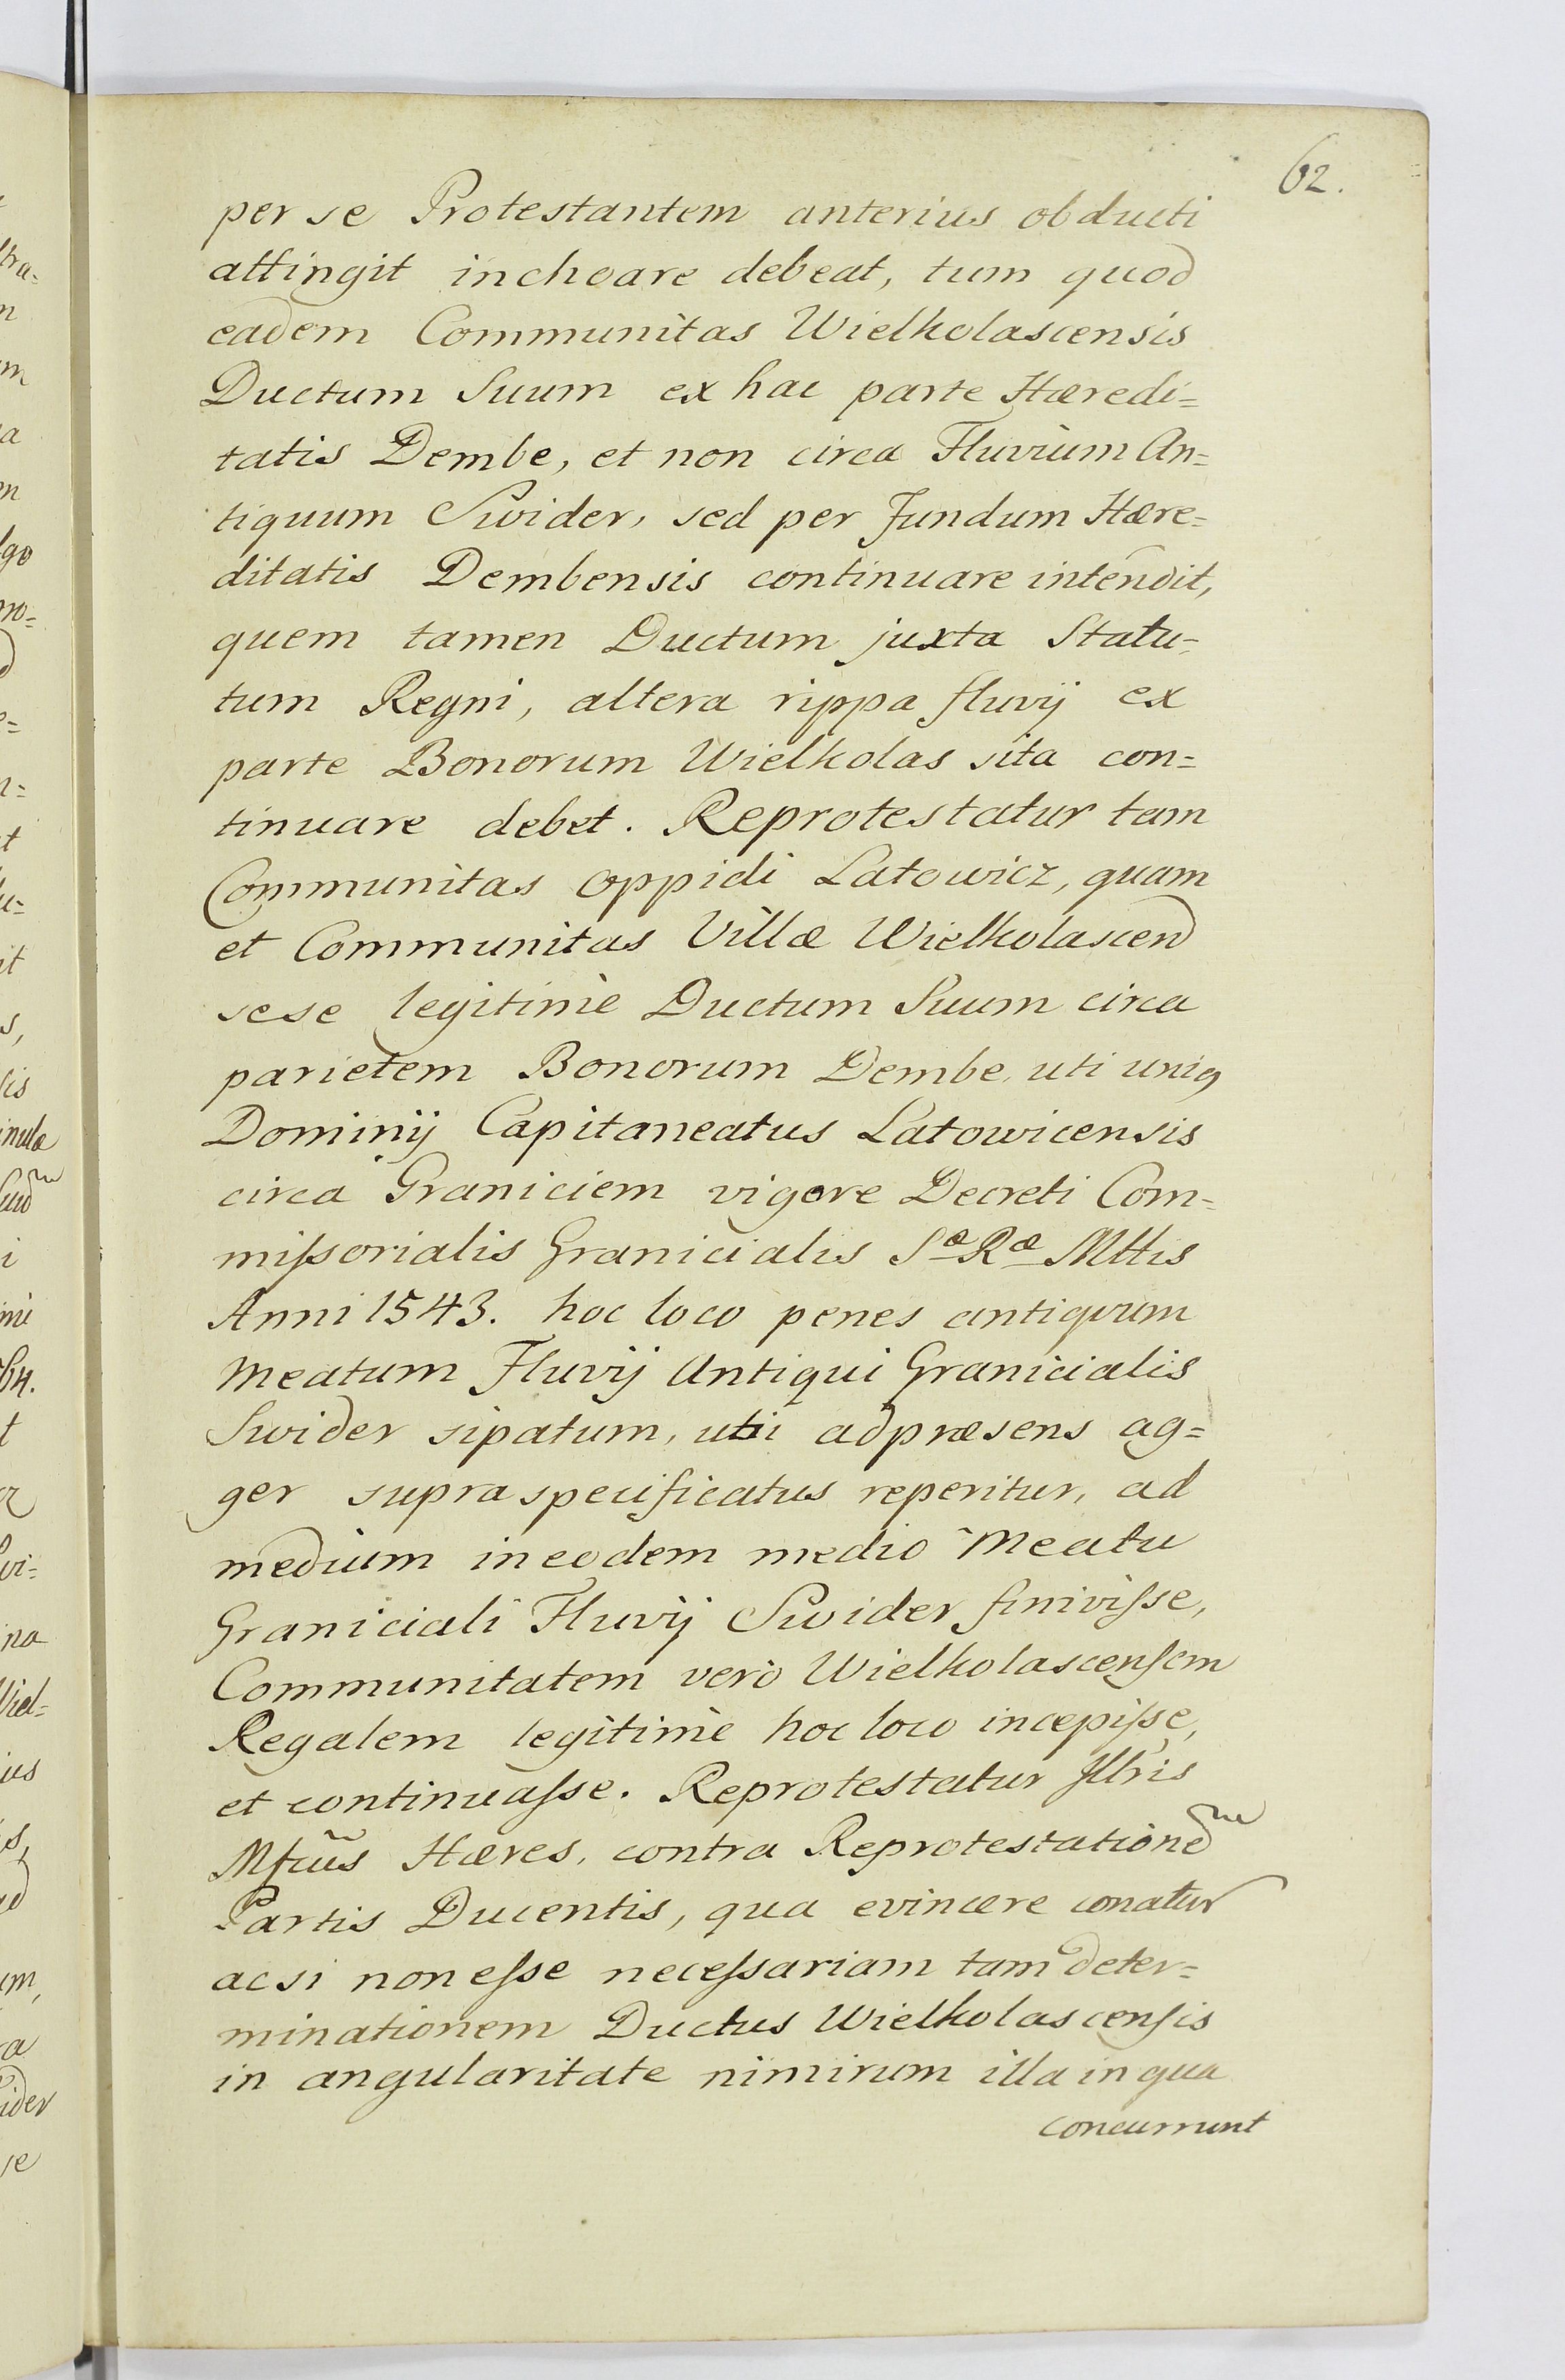 62.
per se Protestantem anterius obducti
attingit inchoare debeat, tum quod
eadem Communitas Wielkolascensis
Ductum Suum ex hac parte Hæredi=
tatis Dembe, et non circa Fluvium An=
tiquum Swider, sed per Fundum Hære=
ditatis Dembensis continuare intendit,
quem tamen Ductum juxta Statu=
tum Regni, altera rippa fluvij ex
parte Bonorum Wielkolas sita con=
tinuare debet. Reprotestatur tam
Communitas oppidi Latowicz, quam
et Communitas Villæ Wielkolascen
sese legitimè Ductum Suum circa
parietem Bonorum Dembe, uti unig
Dominij Capitaneatus Latowicensis
circa Graniciem vigore Decreti Com=
miſsorialis Granicialis Sæ Ræ Mttis
Anni 1543. hoc loco penes antiquum
Meatum Fluvij Antiqui Granicialis
Swider sipatum, uti adpræsens ag=
ger supraspecificatus reperitur, ad
medium ineodem medio Meatu
Graniciali Fluvij Swider finiviſse,
Communitatem verò Wielkolascenſem
Regalem legitimè hoc loco incepiſse,
et continuaſse. Reprotestatur Jllris
Mfcũs Hæres, contra Reprotestatione͠
Partis Ducentis, qua evincere conatur
acsi non eſse neceſsariam tam deter=
minationem Ductus Wielkolascenſis
in angularitate nimirum illa in qua
concurrunt